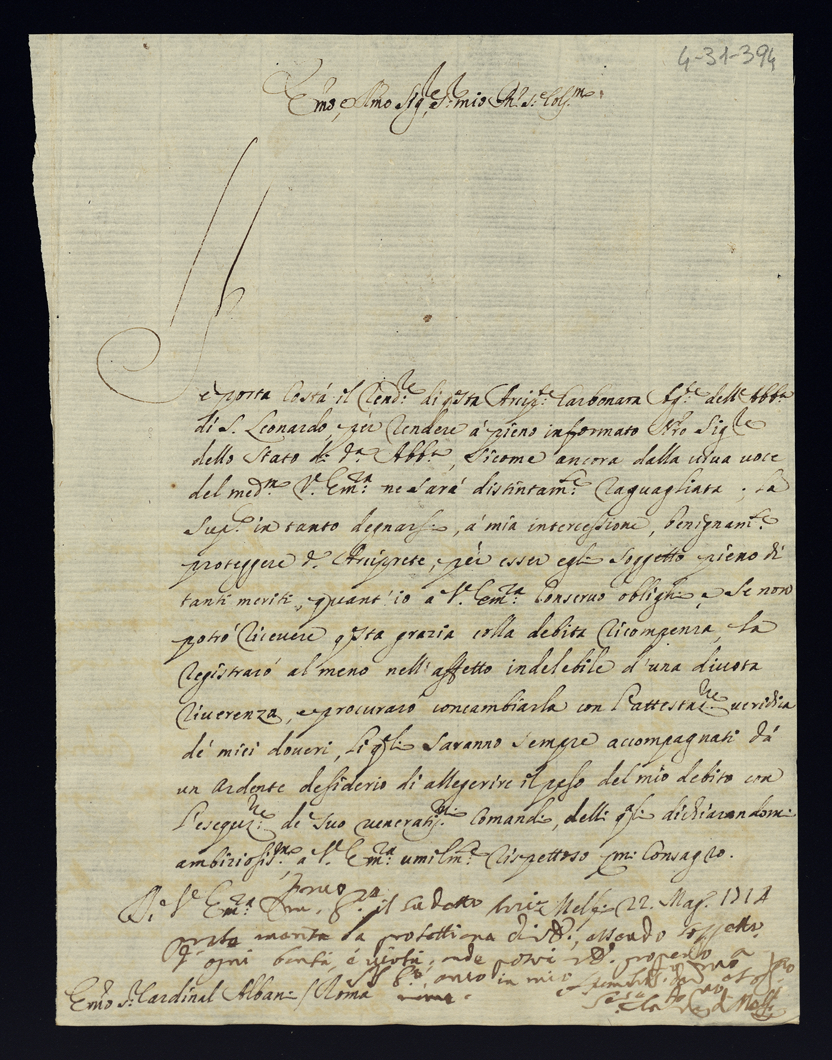 4-31-394
Emo, e Rmo Sig.re, S.r mio P.ne Col.mo
Si
è porta costà il Rend.e di q.sta Arcip.e Carbonara Ag.e dell'Abb.a
di S. Leonardo, per rendere à pieno informato N.ro Sig.re
dello stato di d.a Abb.a, sicome ancora dalla viva voce
del med.mo V. Em.za ne sarà distintam.te raguagliata; La
Sup.co in tanto degnarsi, à mia intercessione, benignam.te
proteggere d.o Arciprete, per esser egli soggetto pieno di
tanti meriti, quant'io a V. Em.za conservo oblighi, e se non
potrò ricevere q.sta grazia colla debita ricompenza, La
registrarò al meno nell'affetto indelebile d'una divota
riverenza, e procurarò concambiarla con l'attestaz.ne veridica
de' miei doveri, li q.li saranno sempre accompagnati dà
un ardente desiderio di allegerire il peso del mio debito con
l'esequz.ne de' suo venerati.mi comandi, delli q.li dichiarandomi
ambiziosis.mo a V. Em.za umilm.te rispettoso mi consagro.
Di V. Em.za Melfi 22. Mag. 1714
il sudetto
merita la protettione di
d'ogni bontà, e virtù, onde
in mio
Emo S.r Cardinal Albani / Roma